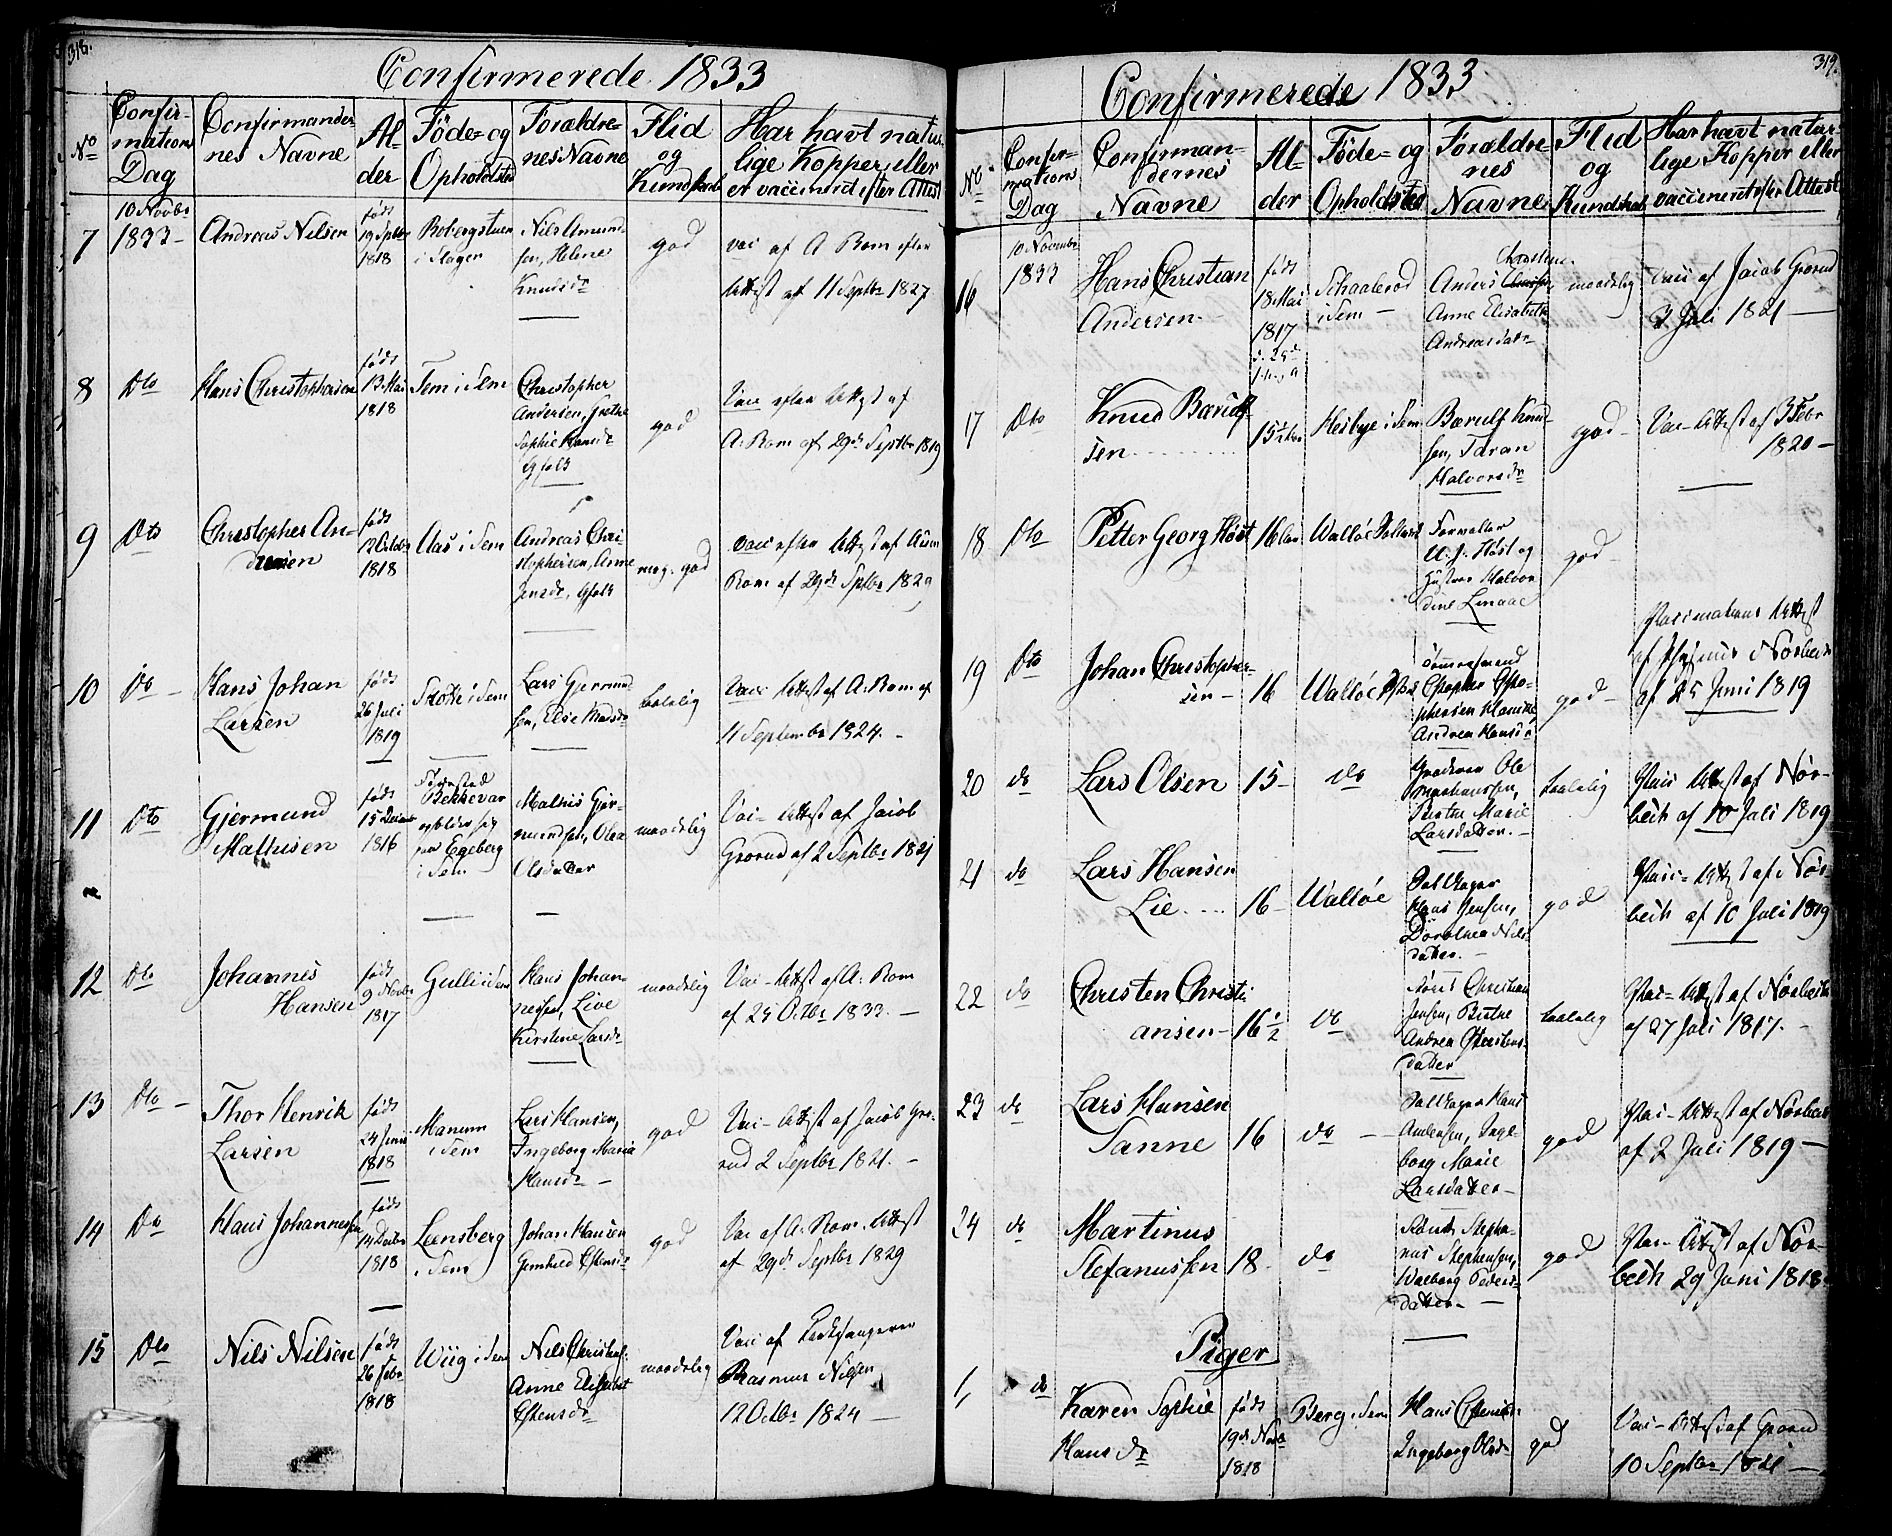 318.
Confirmerede 1833
No
Confir-
mations
Dag
Confirmander-
nes Navne
Al-
der
Føde- og
Opholdsted
Forældre-
nes Navne
Flid
og
Kundskab
Har havt natur-
lige Kopper eller
er vaccineret efter Attest
7
10 Novbr
1833-
Andreas Nilsen
født
19 Septbr
1818
i Slagen
Nils Amund-
sen, Helene
Knudsdr
god
vac af A Rom efter
Attest af 11 Septbr 1827
8
Dto
Hans Christophersen
født
13 Mai
1818
Sem i Sem
Christopher
Andersen, Grethe
Sophie Hansdr
god
Vac efter Attest af
A. Rom af 29de Septbr 1819
9
Dto
Christopher An-
dersen
født
12 Octobr
1818
Aas i Sem
Andreas Chri-
stophersen, Anne
Jensdr,
meg. god
vacc efter Attest af
Rom af 29de Septbr 1829
10
Do
Hans Johan
Larsen
født
26 Juli
1819
i Sem
Lars Gjermund-
sen, Else Madsdr
taalelig
Vacc Attest af A. Rom af
11 Septembr 1824.
11
Dto
Gjermund
Mathisen
født
15 Decbr
1816
Bekkevar
Egeberg
i Sem
Mathis Gjer-
mundsen, Olea
Olsdatter
maadelig
Vac- Attest af Jacob
Grorud af 2 Septbr 1821
12
Do
Johannes
Hansen
født
9 Novbr
1817
Gulli i Sem
Hans Johan-
nesen, Live
Kirstine Larsdr
maadelig
Vac- Attest af A: Rom
af 25 Octbr 1833.
13
Dto
Thor Henrik
Larsen
født
24 Juni
1818
Manum
i Sem
Lars Hansen,
Ingeborg Maria
Hansdr
god
Vac- Attest af Jacob Gro-
rud 2 Septbr 1821.
14
Do
Hans Johannesen
født
14 Decbr
1818
Lensberg
i Sem
Johan Hansen
Gunhild
god
Vac af A: Rom. Attest
af 29de Septbr 1829
15
Dto
Nils Nilsen
født
26 Febr
1818
Wiig i Sem
Nils Christens.
Anne Elisabet
maadelig
Vacc af Kirksangeren
Rasmus Nilsen
12 Octbr 1824
319.
Confirmerede 1833.
No
Confir-
mations
Dag
Confirman-
dernes
Navne
Al-
der
Føde- og
Opholdsted
Forældre
nes
Navne
Flid
og
Kundskab
Har havt natur-
lige Kopper eller
vaccineret efter Attest
16
10 Novembr
1833
Hans Christian
Andersen
født
18 Mai
1817
i Sem
Anders
Anne Elisabeth
Andreasdatr
maadelig
Vacc af Jacob Grorud
2 Juli 1821
17
Dto
Knud Bærulf-
sen
Heibye i Sem
Bærulf Knud-
sen, Taran
Halvorsdr
god
Vac- Attest af 3 Febr
1820
18
Dto
Petter Georg Høst
16 Aar
Walløe
Forvalter
Høst og
god
19
Dto
Johan Christopher-
sen
16
Walløe
Andrea Hansdr
god
Vaccinations Attest
af i Nørbech
af 25 Juni 1819
20
do
Lars Olsen
15
do
Ole
Birthe Marie
Larsdatter.
taalelig
Vac- Attest af Nør-
bech af 10 Juli 1819
21
do
Lars Hansen
Lie
16
Walløe
Hans Jensen,
Dorothea Nils-
datter.
god
Vac- Attest af Nør-
bech af 10 Juli 1819
22
do
Christen Christi-
ansen
16 1/2
do
Christian
Jensen, Birthe
Andrea Christens-
datter
taalelig
Vac- Attest af Nørbech
af 27 Juli 1817.
23
do
Lars Hansen
Sanne
16
do
Hans
Andersen, Inge-
borg Marie
Larsdatter
god
Vac- Attest af Nørbech
af 2 Juli 1819
24
do
Martinus
Stefanussen
18
do
Stepha-
nus Stephensen,
Walborg Peders-
datter
god
Vac- Attest af Nør-
bech 29 Juni 1818
Piger
1,
do
Karen Sophie
Hansdr
født
19de Novbr
1818
Berg i Sem
Hans
Ingeborg Olsdr
god
Vac- Attest af Grorud
10 Septbr 1821